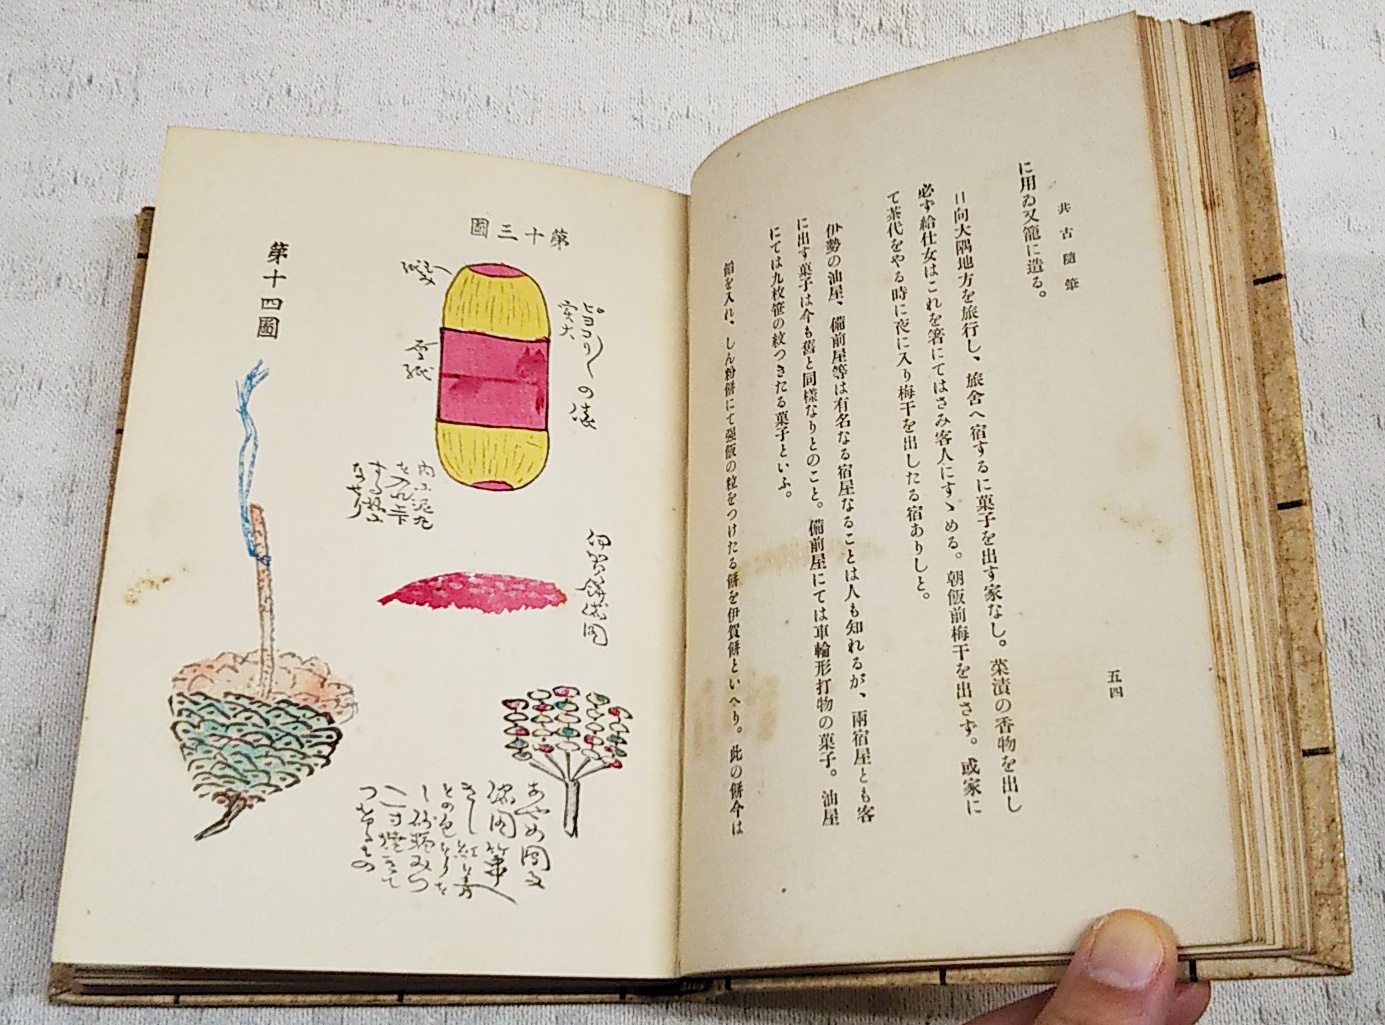 共古隨筆
に用ゐ又籠に造る。
日向大隅地方を旅行し、旅舍へ宿するに菓子を出す家なし。菜漬の香物を出し
必ず給仕女はこれを箸にてはさみ客人にすゝめる。朝飯前梅干を出さず。或家に
て茶代をやる時に夜に入り梅干を出したる宿ありしと。
伊勢の油屋、備前屋等は有名なる宿屋なることは人も知れるが、兩宿屋とも客
に出す菓子は今も舊と同樣なりとのこと。備前屋にては車輪形打物の菓子。油屋
にては九枚笹の紋つきたる菓子といふ。
餡を入れ、しん粉餅にて强飯の粒をつけたる餅を伊賀餅といへり。此の餅今は
五四
第十三圖
ピヨコリ〱の
実大
内に泥丸
を入れ上下
する様に
なせり
伊賀餅
あやめ団子
第十四圖